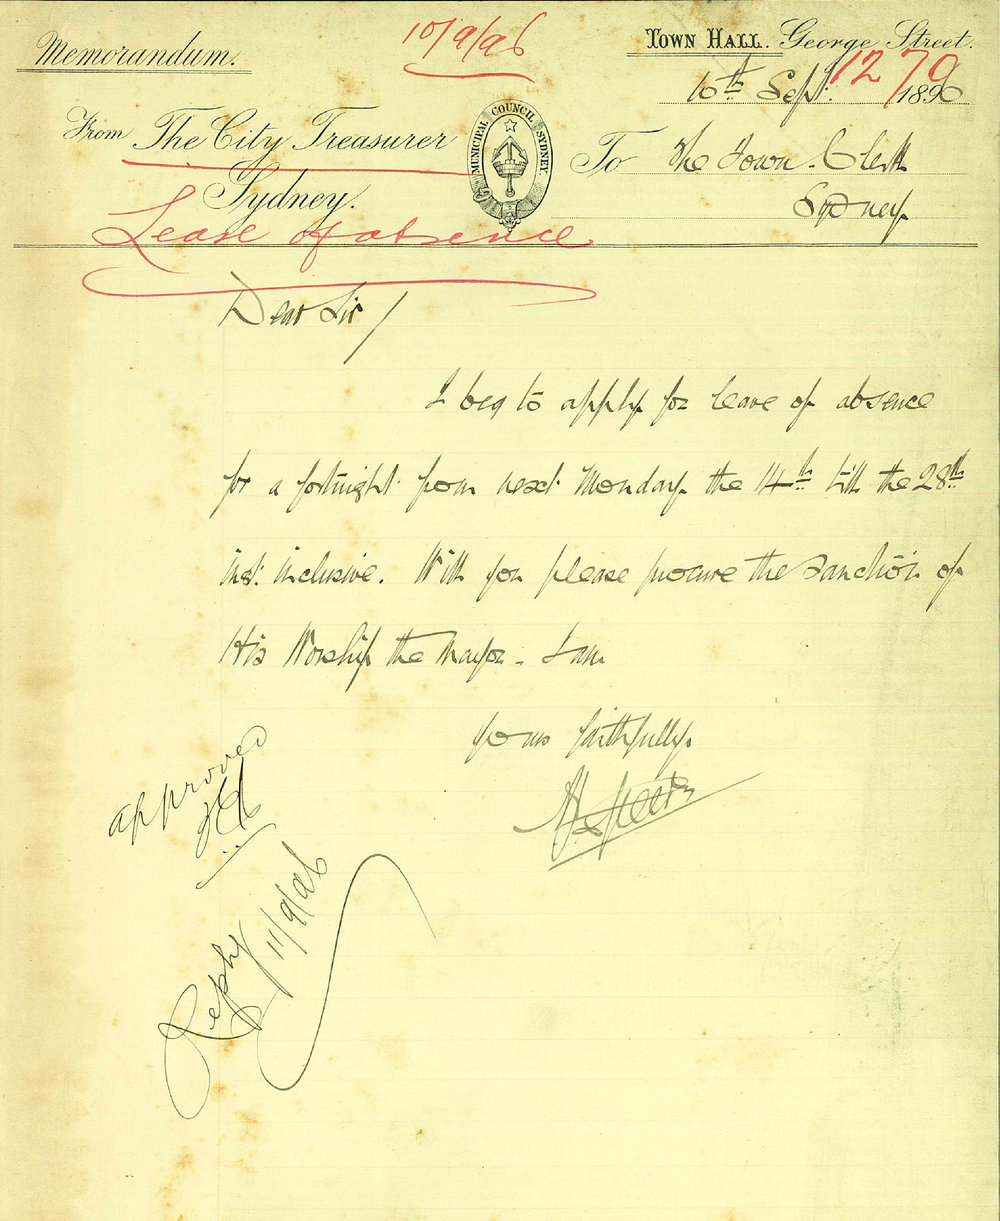 Memorandum.
10/9/96
Town Hall. George Street.
1270
10th Sept. 1896
From The City Treasurer
Sydney.
MUNICIPAL COUNCIL SYDNEY.
To The Town Clerk
Sydney
Leave of absence
Dear Sir/
I beg to apply for leave of absence
for a fortnight from next Monday the 14th till the 28th
inst. inclusive. Will you please procure the sanction of
His Worship the Mayor. I am
Yours faithfully.
approved
Reply 11/9/96